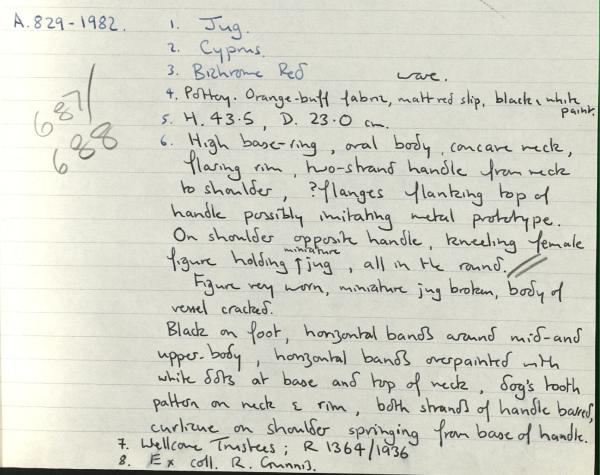 A.829-1982.
1. Jug.
2. Cyprus.
3. Bichrome Red ware.
4. Pottery. Orange-buff fabric, matt red slip, black & white paint.
5. H. 43.5, D. 23.0 cm.
687/
688
6. High base-ring, oval body, concave neck,
flaring rim, two-strand handle from neck
to shoulder, ?flanges flanking top of
handle possibly imitating metal prototype.
On shoulder opposite handle, kneeling female
figure holding ↑ miniature jug, all in the round. //
Figure very worn, miniature jug broken, body of
vessel cracked.
Black on foot, horizontal bands around mid-and
upper-body, horizontal bands overpainted with
white dots at base and top of neck, dog's tooth
pattern on neck & rim, both strands of handle barred,
curline on shoulder springing from base of handle.
7. Wellcome Trustees; R 1364/1936
8. Ex coll. R. Gunnis.